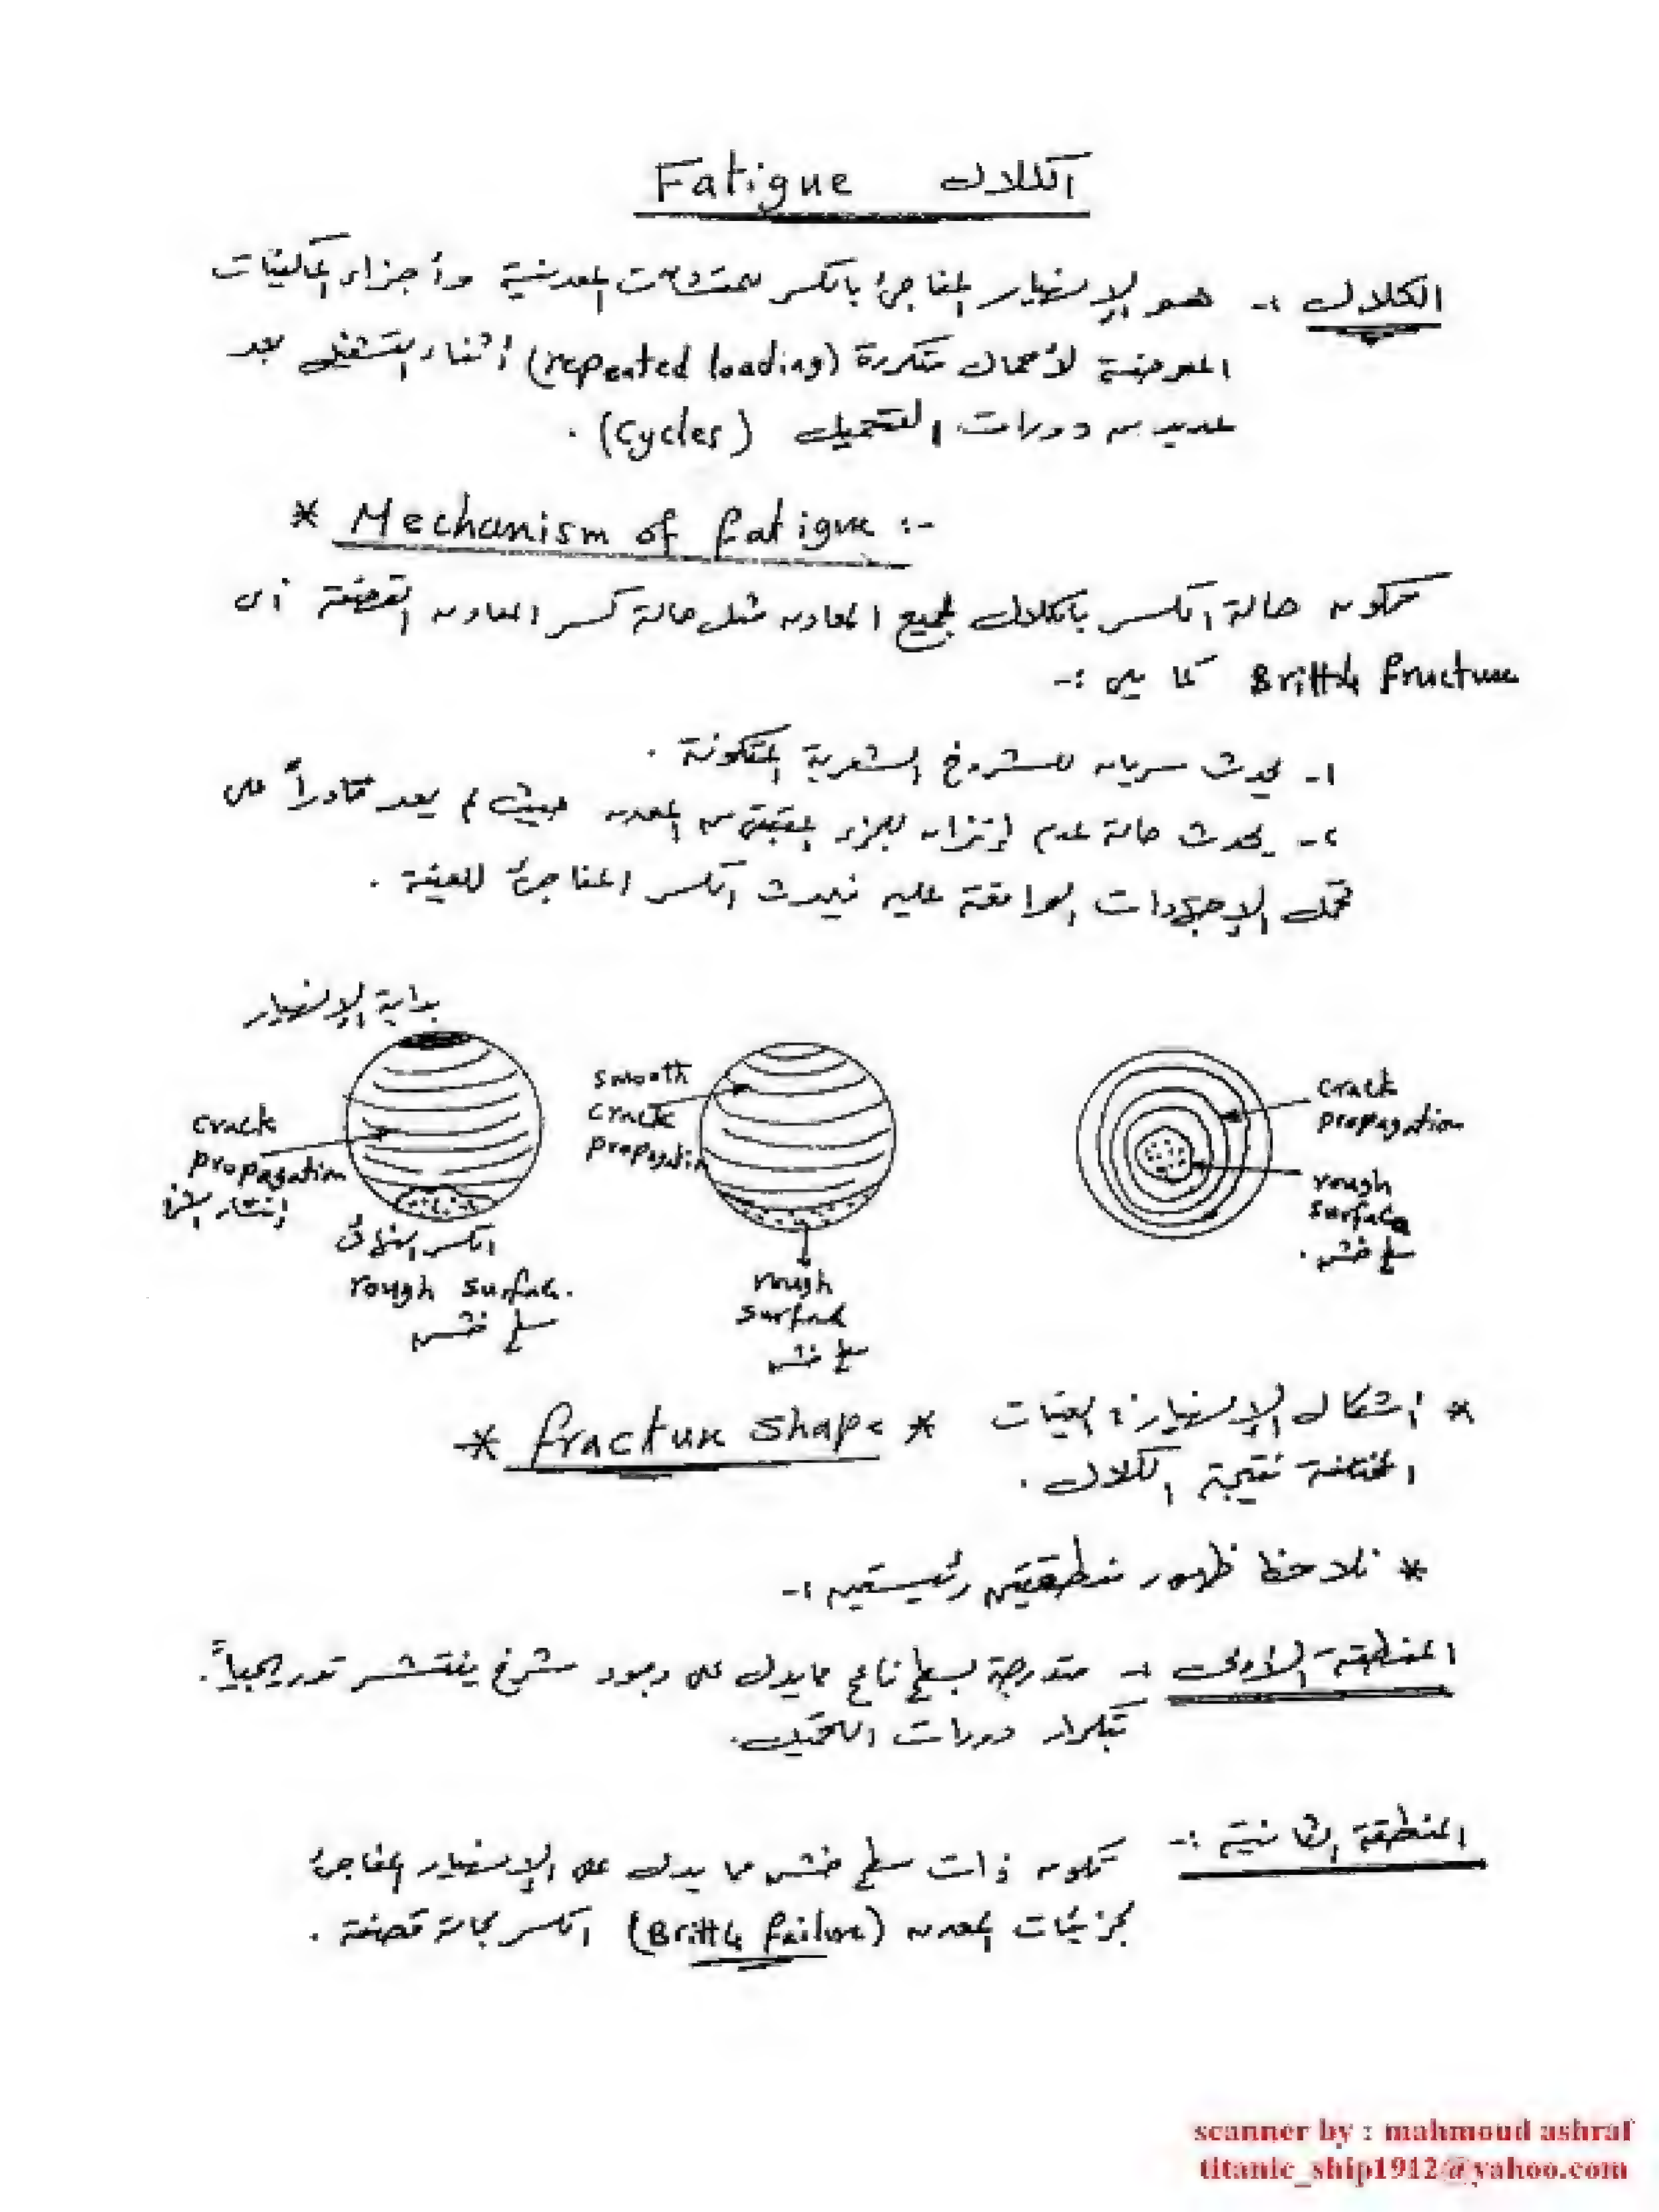 Fatigue الكلال
الكلال :- هو الإنهيار المفاجئ بالكسر للمنشآت المعدنية وأجزاء الماكينات
المعرضة لأحمال متكررة (repeated loading) أثناء التشغيل بعد
عديد من دورات التحميل (Cycles) .
* Mechanism of fatigue :-
تكون حالة الكسر بالكلال لجميع المعادن مثل حالة كسر المعادن القصفة أى
Brittle fructure كما يلى :-
١- يحدث سريان للشروخ الشعرية المتكونة .
٢- يحدث حالة عدم إتزان للجزء المتبقى من المعدن حيث لم يعد قادراً على
تحمل الإجهادات الواقعة عليه فيحدث الكسر المفاجئ للعينة .
بداية الإنهيار
crack
propagation
إنتشار الشرخ
الكسر النهائى
rough surface.
سطح خشن
smooth
crack
propagation
rough
surface
سطح خشن
crack
propagation
rough
surface
سطح خشن .
* أشكال الإنهيار فى العينات * fracture shape *
المختلفة نتيجة الكلال .
* نلاحظ ظهور منطقتين رئيستين :-
المنطقة الأولى :- متدرجة بسطح ناعم مما يدل على وجود شرخ ينتشر تدريجياً.
بتكرار دورات التحميل.
المنطقة الثانية :- تكون ذات سطح خشن مما يدل على الإنهيار المفاجئ
لجزيئات المعدن (Brittle failure) الكسر بحالة قصفة .
scanner by : mahmoud ashraf
titanic_ship1912@yahoo.com